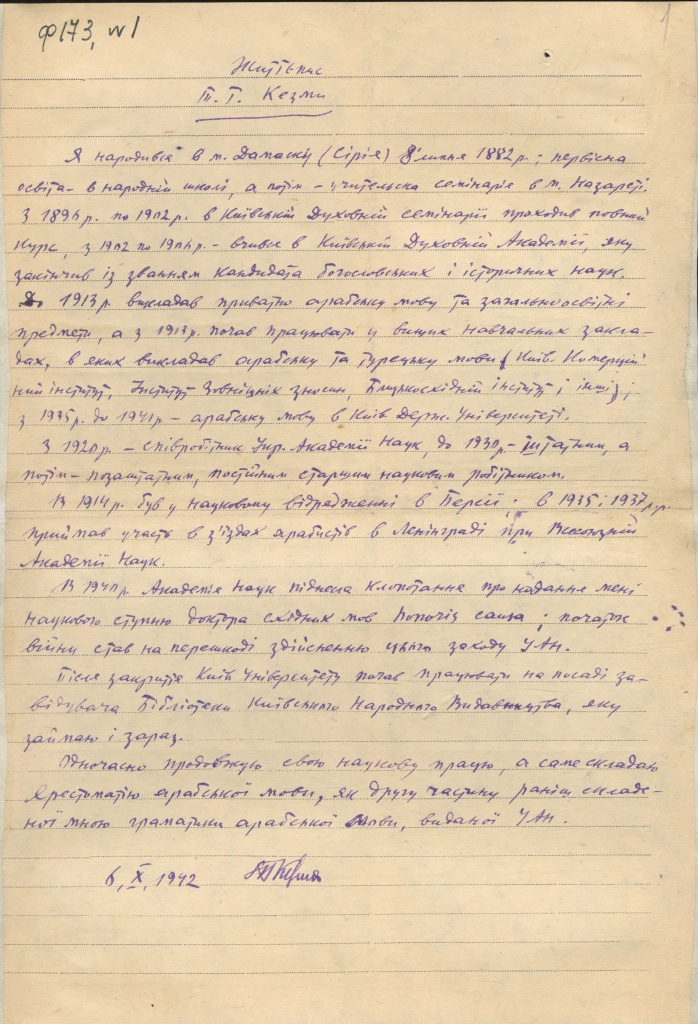 ф 173, №1
1
Життєпис
Т. Г. Кезми
Я народився в м. Дамаску (Сірія) 8 липня 1882 р.; первісна
освіта - в народній школі, а потім - учительська семінарія в м. Назареті.
З 1896 р. по 1902 р. в Київській Духовній семінарії проходив повний
курс, з 1902 по 1906 р. - вчився в Київській Духовній Академії, яку
закінчив із званням кандидата богословських і історичних наук.
До 1913 р. викладав приватно арабську мову та загальноосвітні
предмети, а з 1913 р. почав працювати у вищих навчальних закла-
дах, в яких викладав арабську та турецьку мови (Київ. Комерцій-
ний інститут, Інститут Зовнішніх зносин, Близькосхідній інститут і інші);
з 1935 р. до 1941 р - арабську мову в Київ. Держ. Університеті.
З 1920 р. - співробітник Укр. Академії Наук, до 1930 р. - штатним, а
потім - позаштатним, постійним старшим науковим робітником.
В 1914 р. був у науковому відрядженні в Персії; в 1935 і 1937 р.р.
приймав участь в з'їздах арабистів в Ленінграді при Всесоюзній
Академії Наук.
В 1940 р. Академія Наук піднесла клопотання про надання мені
наукового ступню доктора східних мов honoris causa; початок
війни став на перешкоді здійсненню цього заходу УАН.
Після закриття Київ Університету почав працювати на посаді за-
відувача Бібліотеки Київського Народного Видавництва, яку
займаю і зараз.
Одночасно продовжую свою наукову працю, а саме складаю
Хрестоматію арабської мови, як другу частину раніш складе-
ної мною граматики арабської мови, виданої УАН.
6, X, 1942